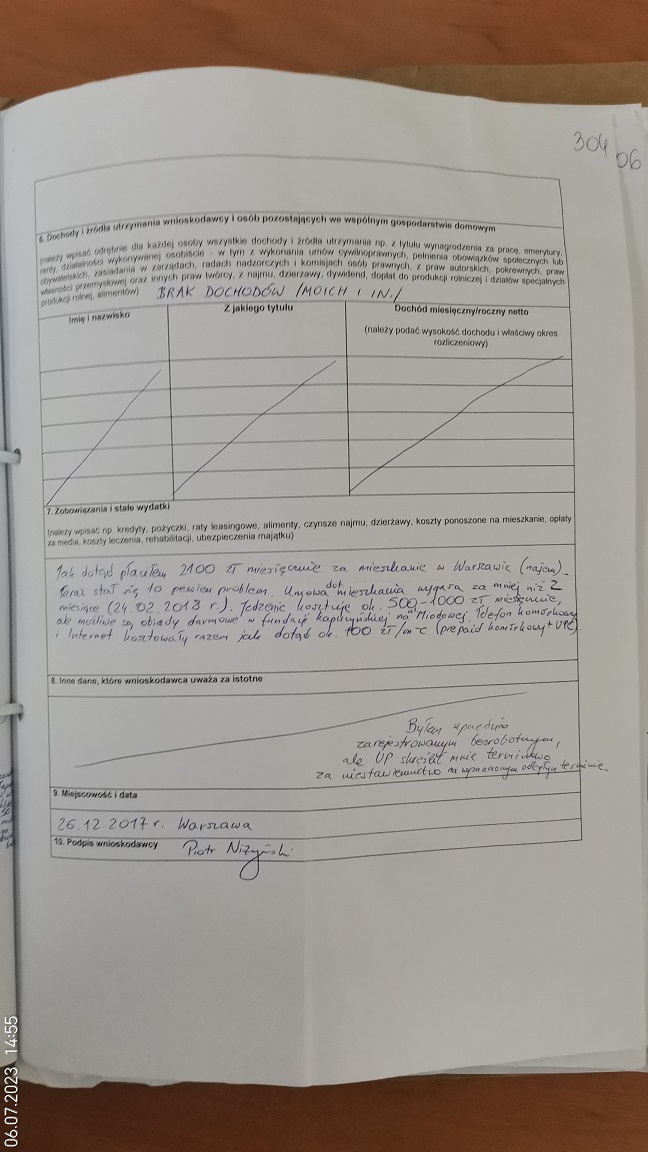 304
06
6. Dochody i źródła utrzymania wnioskodawcy i osób pozostających we wspólnym gospodarstwie domowym
(należy wpisać odrębnie dla każdej osoby wszystkie dochody i źródła utrzymania np. z tytułu wynagrodzenia za pracę, emerytury,
renty, działalności wykonywanej osobiście - w tym z wykonania umów cywilnoprawnych, pełnienia obowiązków społecznych lub
obywatelskich, zasiadania w zarządach, radach nadzorczych i komisjach osób prawnych, z praw autorskich, pokrewnych, praw
własności przemysłowej oraz innych praw twórcy, z najmu, dzierżawy, dywidend, dopłat do produkcji rolniczej i działów specjalnych
produkcji rolnej, alimentów) BRAK DOCHODÓW /MOICH I IN./
Imię i nazwisko
Z jakiego tytułu
Dochód miesięczny/roczny netto
(należy podać wysokość dochodu i właściwy okres
rozliczeniowy)
7. Zobowiązania i stałe wydatki
(należy wpisać np. kredyty, pożyczki, raty leasingowe, alimenty, czynsze najmu, dzierżawy, koszty ponoszone na mieszkanie, opłaty
za media, koszty leczenia, rehabilitacji, ubezpieczenia majątku)
Jak dotąd płaciłem 2100 zł miesięcznie za mieszkanie w Warszawie (najem).
Teraz stał się to pewien problem. Umowa dot. mieszkania wygasa za mniej niż 2
miesiące (24.02.2018 r.). Jedzenie kosztuje ok. 500-1000 zł miesięcznie,
ale możliwe są obiady darmowe w fundacji kapucyńskiej na ul. Miodowej. Telefon komórkowy
i Internet kosztowały razem jak dotąd ok. 100 zł/m-c (prepaid komórkowy + UPC).
8. Inne dane, które wnioskodawca uważa za istotne
Byłem uprzednio
zarejestrowanym bezrobotnym,
ale UP skreślił mnie
za niestawiennictwo na wyznaczonym terminie.
9. Miejscowość i data
26.12.2017 r. Warszawa
10. Podpis wnioskodawcy Piotr Niżyński
06.07.2023 14:55